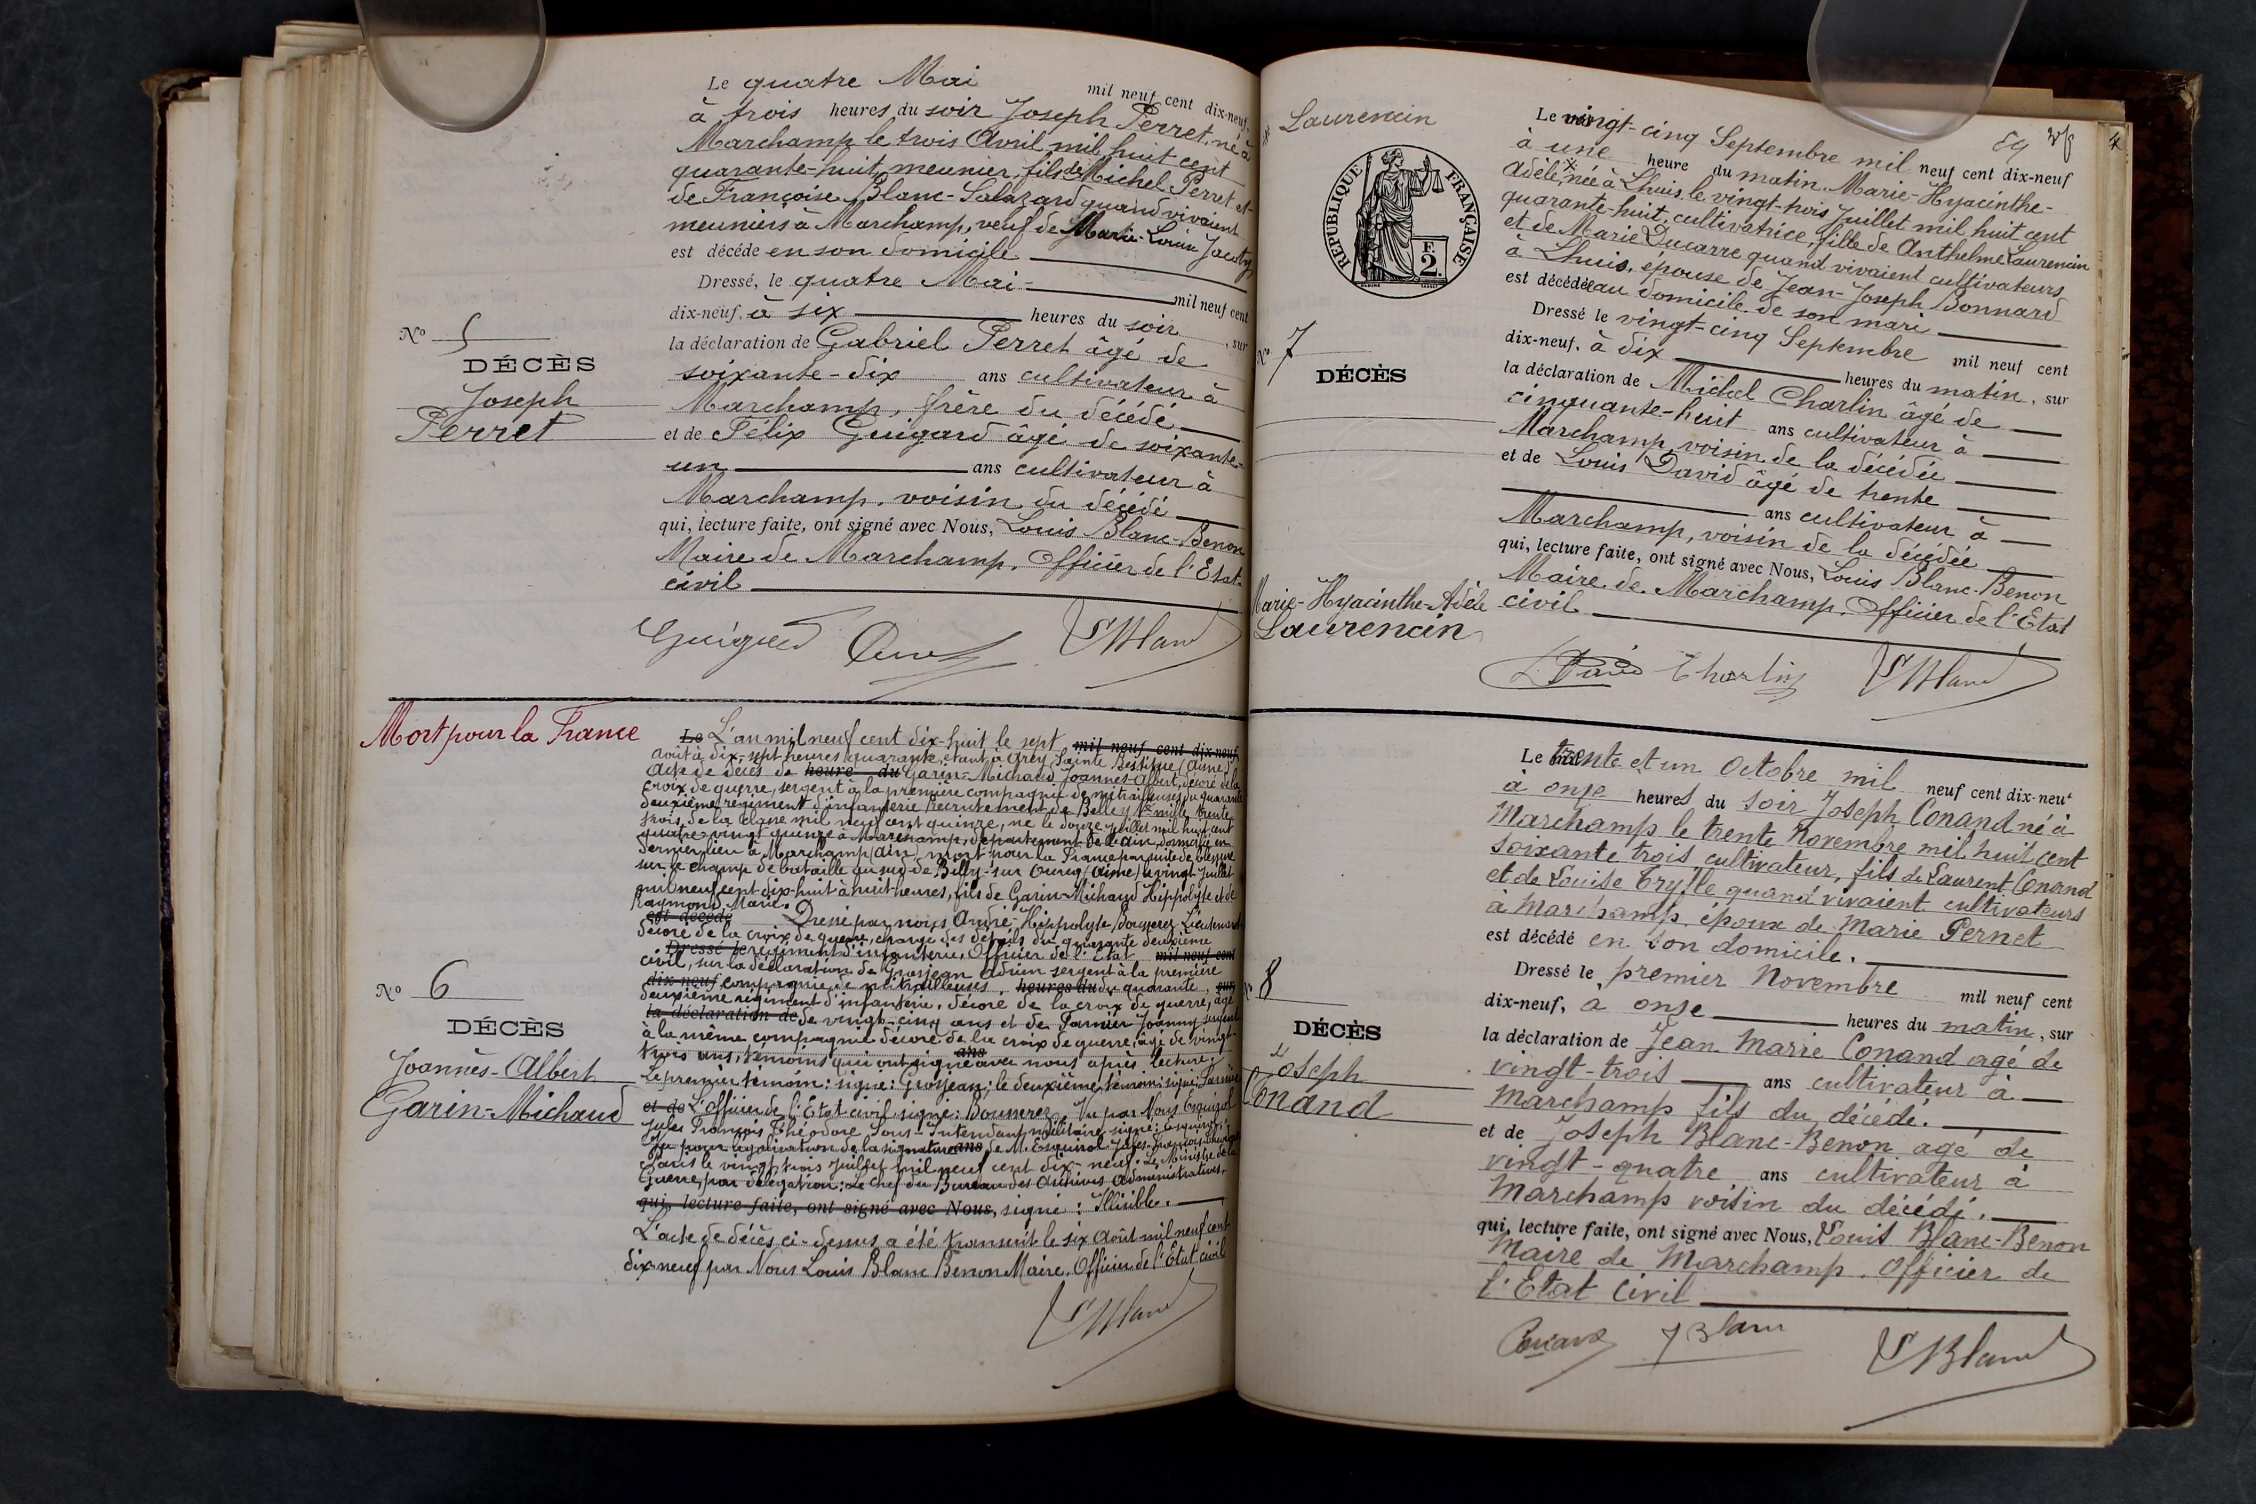 Le quatre Mai mil neuf cent dix-neuf,
à trois heures du soir Joseph Perret, né à
Marchamp le trois Avril mil huit cent
quarante-huit, meunier, fils de Michel Perret et
de Françoise Blanc-Salazard quand vivaient
meuniers à Marchamp, veuf de Marie-Louise
est décédé en son domicile
Dressé, le quatre Mai mil neuf cent
dix-neuf, à six heures du soir, sur
la déclaration de Gabriel Perret âgé de
soixante-dix ans cultivateur à
Marchamp, frère du décédé
et de Félix Guigard âgé de soixante-
un ans cultivateur à
Marchamp, voisin du décédé
qui, lecture faite, ont signé avec Nous, Louis Blanc-Benon
Maire de Marchamp, Officier de l'Etat-
civil
No 5
DÉCÈS
Joseph
Perret
Mort pour la France
Le L'an mil neuf cent dix-huit le sept mil neuf cent dix-neuf
août à dix-sept heures quarante, étant à Orcy Sainte (Aisne)
Acte de décès de heure du Garin-Michaud Joannès-Albert, décoré de la
croix de guerre, sergent à la première compagnie de mitrailleuses du quarante
deuxième régiment d'infanterie recrutement de Belley No mille trente
trois de la classe mil neuf cent quinze, né le douze juillet mil huit cent
quatre-vingt quinze à Marchamp, département de l'Ain, domicilié en
dernier lieu à Marchamp (Ain) mort pour la France par suite de blessure
sur le champ de bataille au sud de Billy-sur Ourcq (Aisne) le vingt juillet
mil neuf cent dix-huit à huit heures, fils de Garin-Michaud Hippolyte et de
Raymond Marie.
est décédé Dressé par nous André-Hippolyte Lieutenant
décoré de la croix de guerre, chargé des détails du quarante deuxième
Dressé le régiment d'infanterie, Officier de l'Etat mil neuf cent
civil, sur la déclaration de Grosjean Adrien sergent à la première
dix-neuf compagnie de mitrailleuses, heures du du quarante, sur
deuxième régiment d'infanterie, décoré de la croix de guerre, âgé
la déclaration de de vingt-cinq ans et de Joanny sergent
à la même compagnie décoré de la croix de guerre, âgé de vingt-
trois ans, témoins qui ont signé avec nous après lecture. ans
Le premier témoin: signé: Grosjean; le deuxième témoin: signé:
et de L'Officier de l'Etat-civil signé: Vu par Nous Esquirol
Jules François Théodore Sous-Intendant militaire signé: Esquirol.
Vu pour légalisation de la signature ans de M. Esquirol Jules-François
Paris le vingt trois juillet mil neuf cent dix-neuf. Le Ministre de la
Guerre, par délégation: Le Chef du Bureau des Archives Administratives,
qui, lecture faite, ont signé avec Nous, signé: Illisible.
L'acte de décès ci-dessus a été transcrit le six Août mil neuf cent
dix neuf par Nous Louis Blanc Benon Maire, Officier de l'Etat civil
No 6
DÉCÈS
Joannès-Albert
Garin-Michaud
Laurencin
RÉPUBLIQUE FRANÇAISE
F.
2
Le vingt-cinq Septembre mil neuf cent dix-neuf
à une heure du matin Marie-Hyacinthe-
Adèle, née à Lhuis le vingt-trois Juillet mil huit cent
quarante-huit, cultivatrice, fille de Anthelme Laurencin
et de Marie Ducarre quand vivaient cultivateurs
à Lhuis, épouse de Jean-Joseph Bonnard
est décédée au domicile de son mari
Dressé le vingt-cinq Septembre mil neuf cent
dix-neuf, à dix heures du matin, sur
la déclaration de Michel Charlin âgé de
cinquante-huit ans cultivateur à
Marchamp voisin de la décédée
et de Louis David âgé de trente
ans cultivateur à
Marchamp, voisin de la décédée
qui, lecture faite, ont signé avec Nous, Louis Blanc-Benon
Maire de Marchamp, Officier de l'Etat
civil
No 7
DÉCÈS
Marie-Hyacinthe-Adèle
Laurencin
David Charlin
Le trente et un Octobre mil neuf cent dix-neuf
à onze heures du soir Joseph Conand né à
Marchamp le trente Novembre mil huit cent
soixante trois cultivateur, fils de Laurent Conand
et de Louise quand vivaient cultivateurs
à Marchamp, époux de Marie Pernet
est décédé en son domicile.
Dressé le premier Novembre mil neuf cent
dix-neuf, à onze heures du matin, sur
la déclaration de Jean Marie Conand agé de
vingt-trois ans cultivateur à
Marchamp fils du décédé.
et de Joseph Blanc-Benon agé de
vingt-quatre ans cultivateur à
Marchamp voisin du décédé.
qui, lecture faite, ont signé avec Nous, Louis Blanc-Benon
Maire de Marchamp, Officier de
l'Etat Civil
8
DÉCÈS
Joseph
Conand
Conand J Blanc